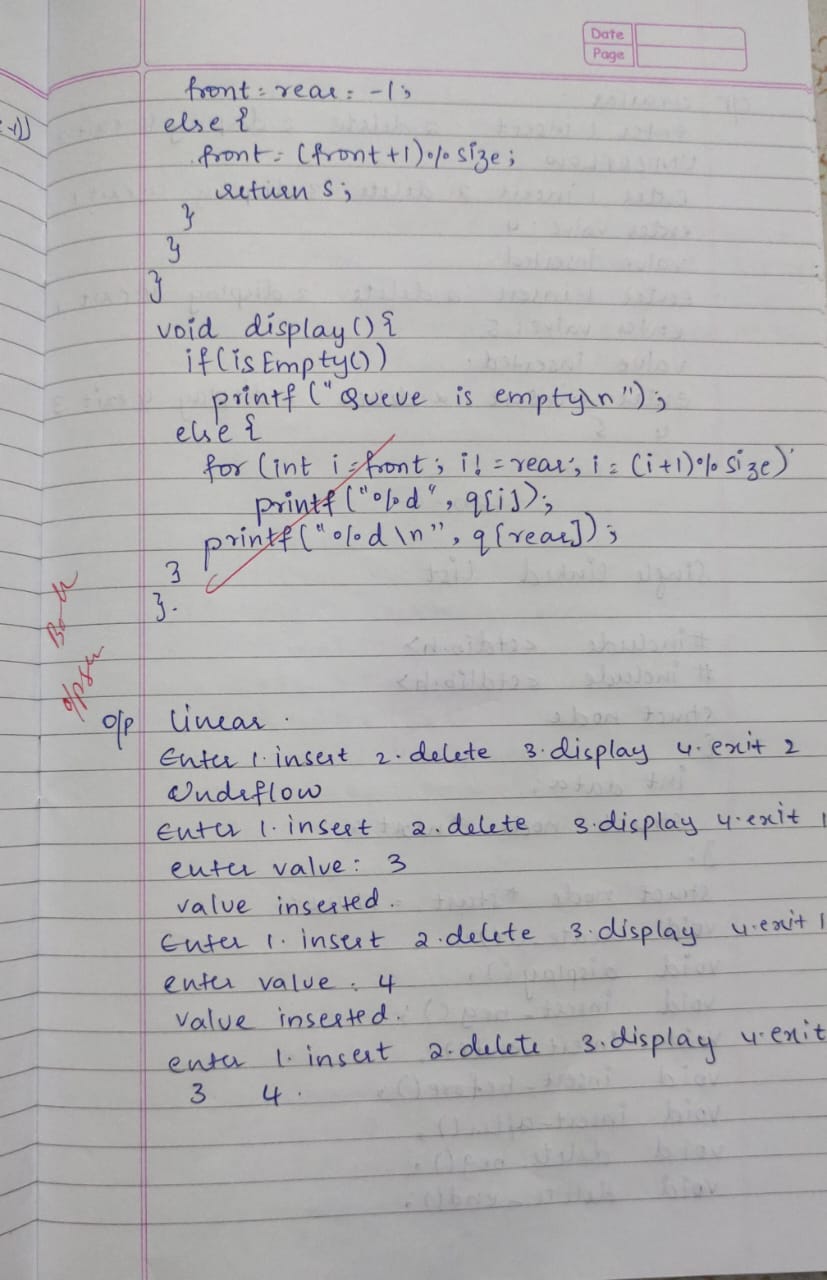 Date
Page
-1))
front = rear = -1;
else {
front = (front+1)% size;
return s;
}
}
}
void display() {
if (isEmpty())
printf ("Queue is empty\n");
else {
for (int i = front; i! = rear; i = (i+1)% size)
printf ("%d", q[i]);
printf ("%d \n", q[rear]);
}
}.
o/p linear.
Enter 1. insert 2. delete 3. display 4. exit 2
Undeflow
Enter 1. insert 2. delete 3. display 4. exit 1
enter value: 3
value inserted.
Enter 1. insert 2. delete 3. display 4. exit 1
enter value: 4
value inserted.
enter 1. insert 2. delete 3. display 4. exit
3 4.